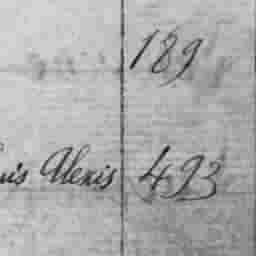 189
uis Alexis 493